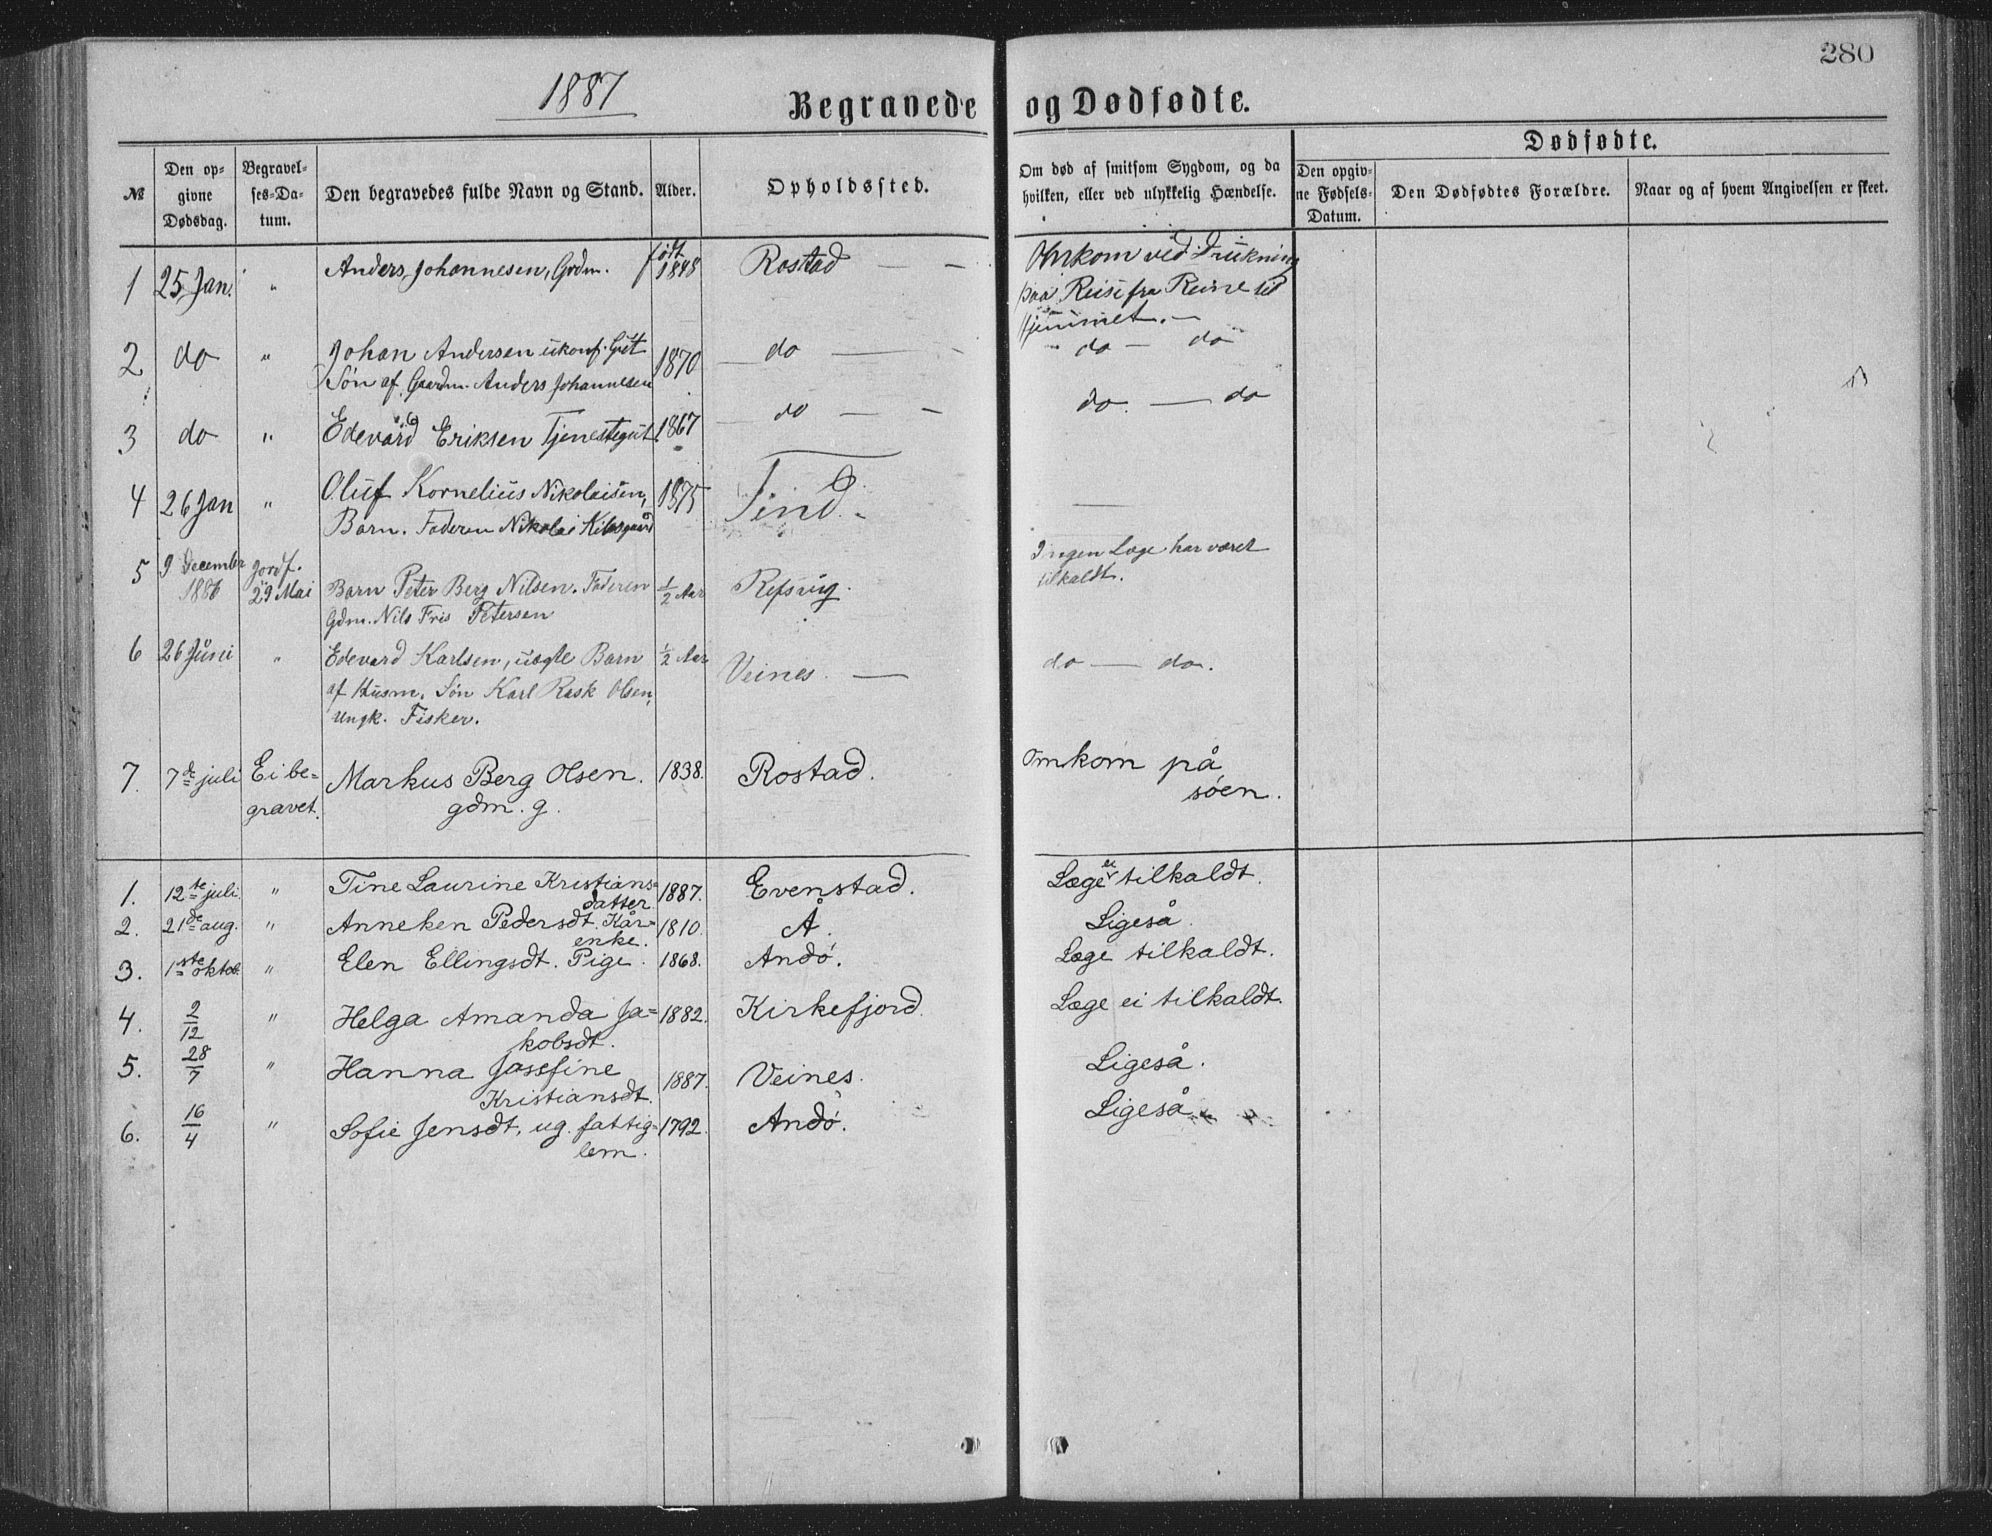 280
1887
Begravede og Dødfødte.
Dødfødte.
№ Den opgivne Dødsdag. Begravelses-Datum. Den begravedes fulde Navn og Stand. Alder. Opholdssted. Om død af smitsom Sygdom, og da hvilken, eller ved ulykkelig Hændelse. Den opgivne Fødsels-Datum. Den Dødfødtes Forældre. Naar og af hvem Angivelsen er skeet.
1 25 Jan. " Anders Johannesen, Grdm. født 1848 Rostad — — Omkom ved Drukning
paa Reise fra Reine til
Hjemmet. —
2 do " Johan Andersen ukonf. Gut 1870 — do — — do — do
Søn af Gaardm. Anders Johannesen
3 do " Edevard Eriksen Tjenestegut 1867 — do — — do. — do
4 26 Jan " Oluf Kornelius Nikolaisen, 1875 Tind. —
Barn. Faderen Nikolai
5 9 December 1886 Jordf. 29 Mai Barn Peter Berg Nilsen. Faderen ½ Aar Refsvig. Ingen Læge har været
Gdm. Nils Fris Petersen tilkaldt.
6 26 Juni " Edevard Karlsen, uægte Barn ½ Aar Veines. — do — do.
af Husm. Søn Karl Rask Olsen,
Ungk. Fisker.
7. 7de juli Ei be= Markus Berg Olsen. 1838. Rostad. Omkom på
gravet. gdm. g. søen.
1. 12te juli. " Tine Laurine Kristians= 1887. Evenstad. Læge ei tilkaldt.
datter.
2. 21de aug. " Anneken Pedersdt. Kår= 1810. Å. Ligeså.
enke.
3. 1ste oktob. " Elen Ellingsdt. Pige. 1868. Andø. Læge tilkaldt.
4. 2/12 " Helga Amanda Ja= 1882. Kirkefjord. Læge ei tilkaldt.
kobsdt.
5. 28/7 " Hanna Josefine 1887. Veines. Ligeså.
Kristiansdt.
6. 16/4 " Sofie Jensdt, ug. fattig= 1792. Andø. Ligeså
lem.